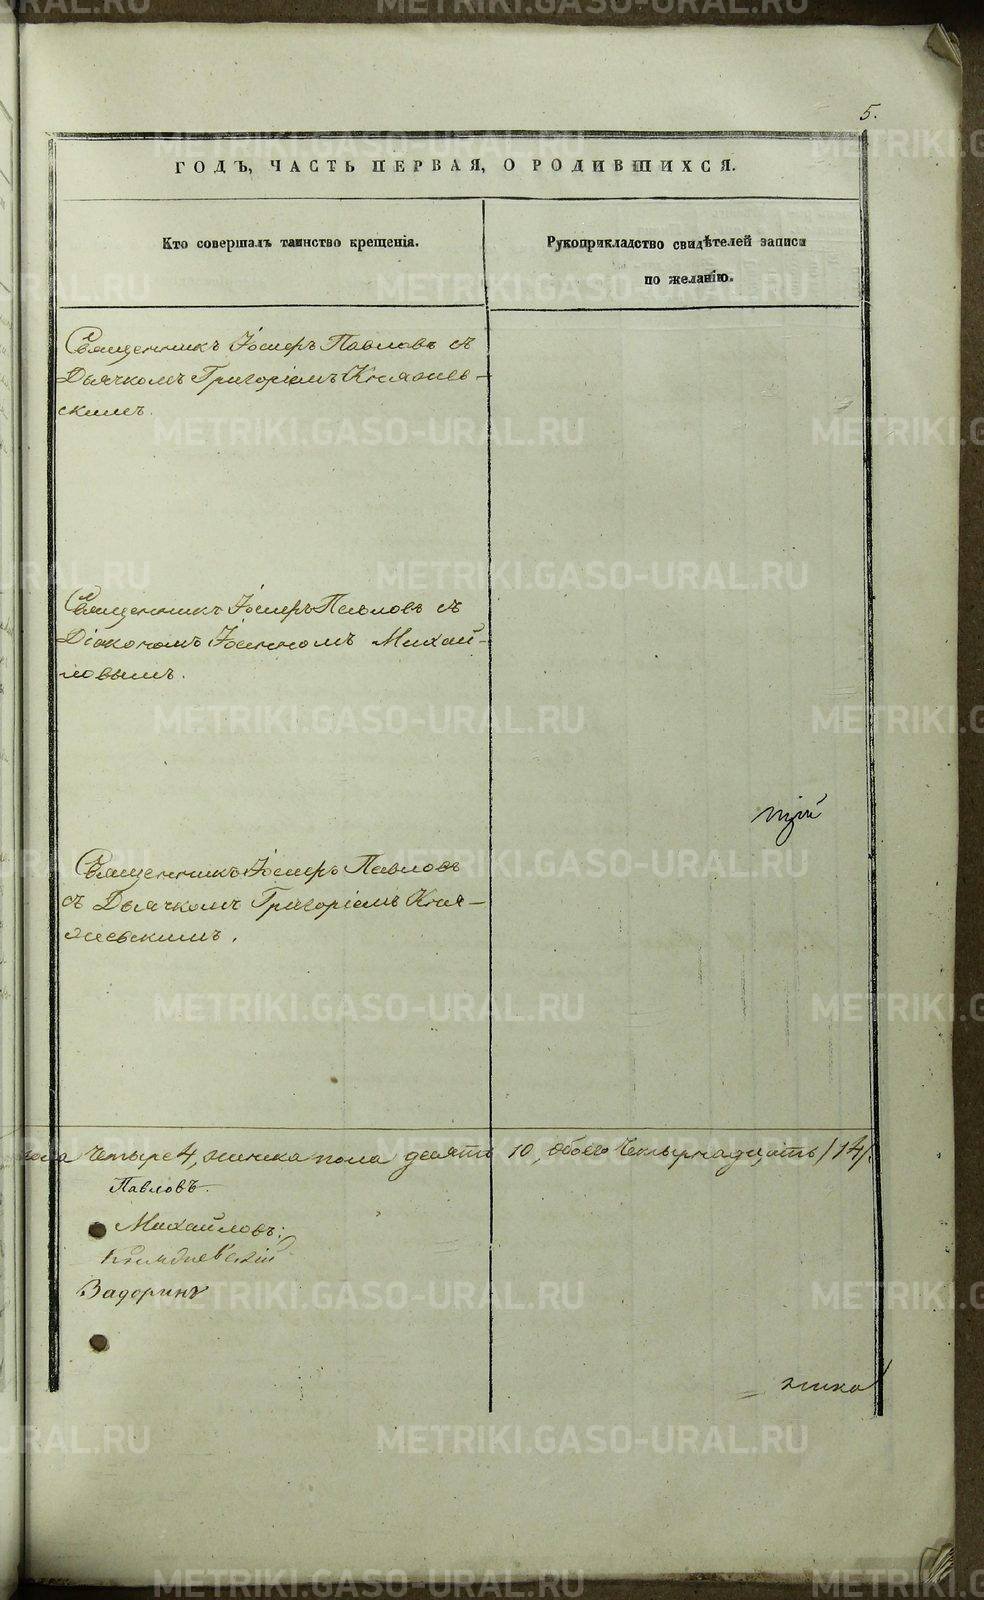 5.
ГОДЪ, ЧАСТЬ ПЕРВАЯ, О РОДИВШИХСЯ.
Кто совершалъ таинство крещенія.
Рукоприкладство свидѣтелей записи
по желанію.
Священникъ Іосифъ Павловъ съ
Дьячкомъ Григоріемъ Княжев-
скимъ.
Священникъ Іосифъ Павловъ съ
Діакономъ Іоанномъ Михай-
ловымъ.
Священникъ Іосифъ Павловъ
съ Дьячкомъ Григоріемъ Кня-
жевскимъ.
пола четыре 4, женска пола десять 10, обоего четырнадцать /14/.
Павловъ.
Михайловъ:
Задоринъ
METRIKI.GASO-URAL.RU